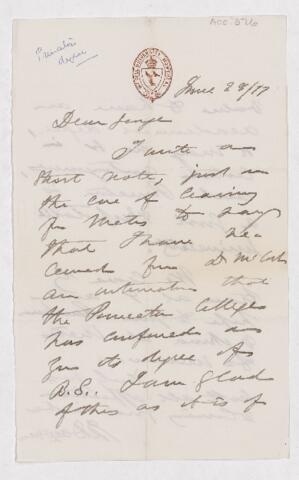 Princeton
degree
June 28/77
Dear George
I write a
short note, just on
the eve of leaving
for Metis to say
that I have re-
ceived from Dr McCosh
an intimation that
the Princeton College
has conferred on
you its degree of
B.S.. I am glad
of this as it is of